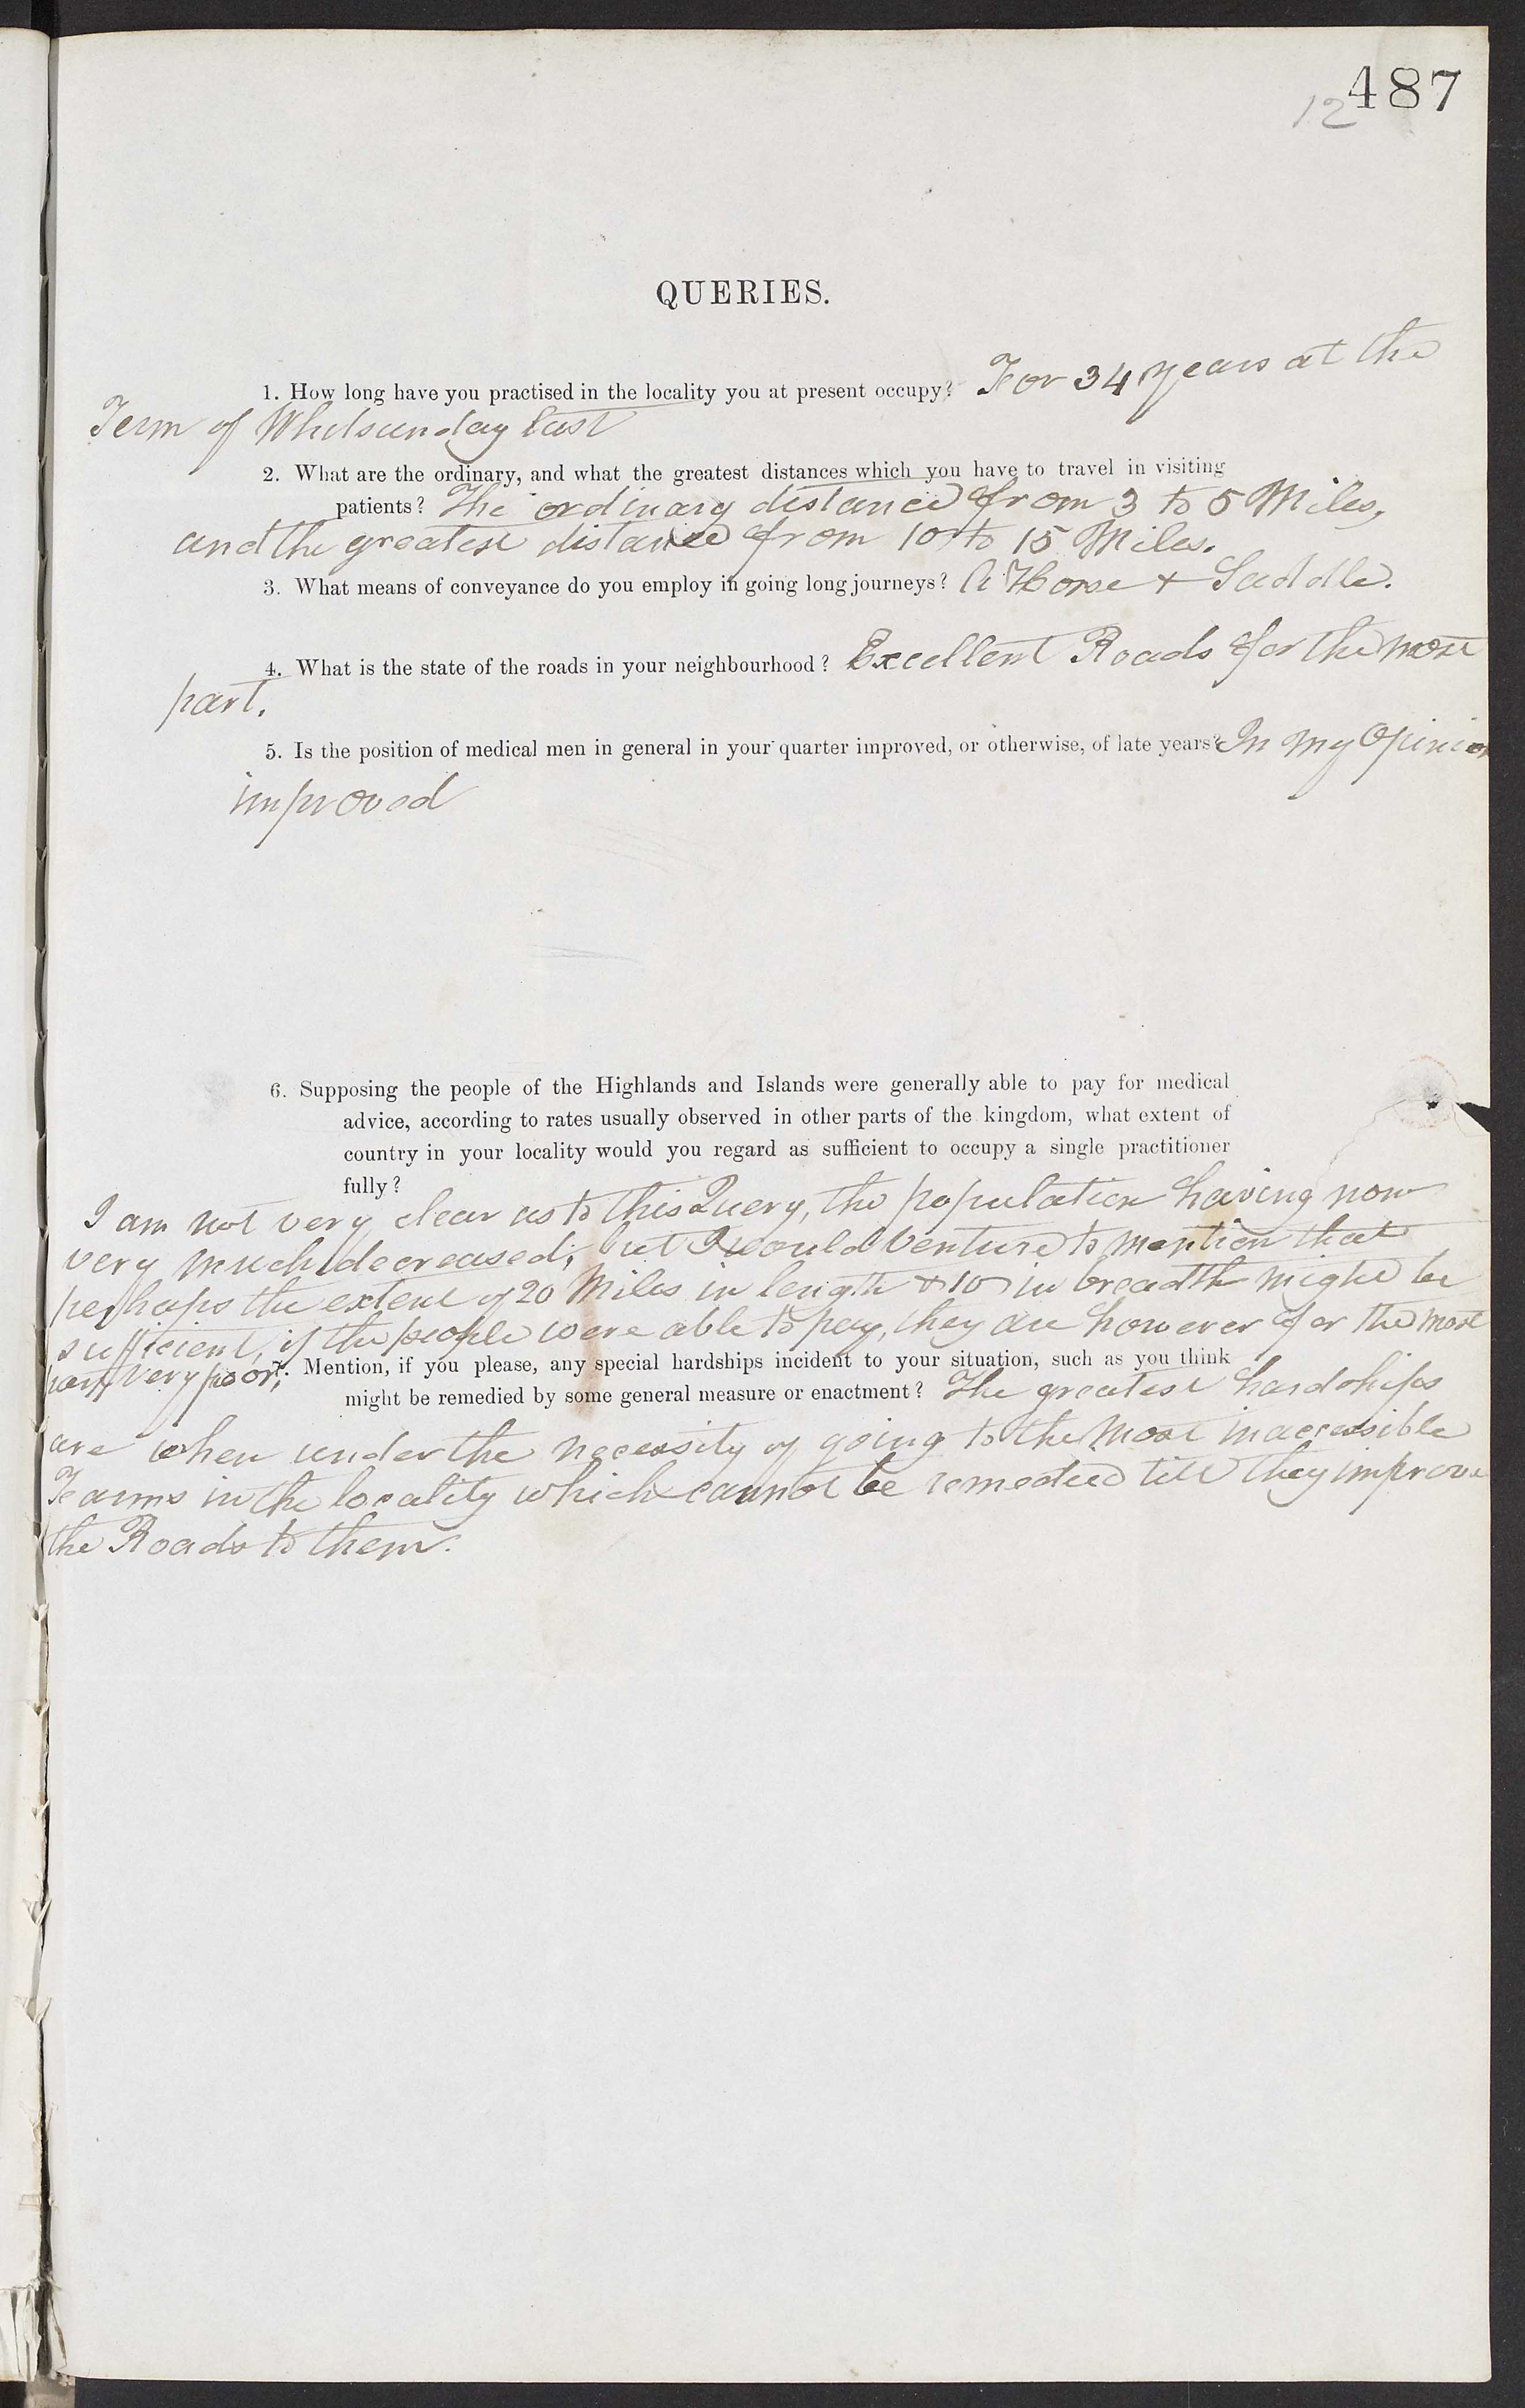 487
12
QUERIES.
1. How long have you practised in the locality you at present occupy? For 34 years at the
Term of Whitsunday last
2. What are the ordinary, and what the greatest distances which you have to travel in visiting
patients? The ordinary distance from 3 to 5 Miles,
and the greatest distance from 10 to 15 Miles.
3. What means of conveyance do you employ in going long journeys? A Horse & Saddle.
4. What is the state of the roads in your neighbourhood? Excellent Roads for the most
part.
5. Is the position of medical men in general in your quarter improved, or otherwise, of late years? In my Opinion
improved
6. Supposing the people of the Highlands and Islands were generally able to pay for medical
advice, according to rates usually observed in other parts of the kingdom, what extent of
country in your locality would you regard as sufficient to occupy a single practitioner
fully?
I am not very clear as to this Query, the population having now
very much decreased; but I would venture to mention that
perhaps the extent of 20 Miles in length & 10 in breadth might be
sufficient, if the people were able to pay, they are however for the most
part very poor;
7. Mention, if you please, any special hardships incident to your situation, such as you think
might be remedied by some general measure or enactment? The greatest hardships
are when under the necessity of going to the most inaccessible
Farms in the locality which cannot be remedied till they improve
the Roads to them.